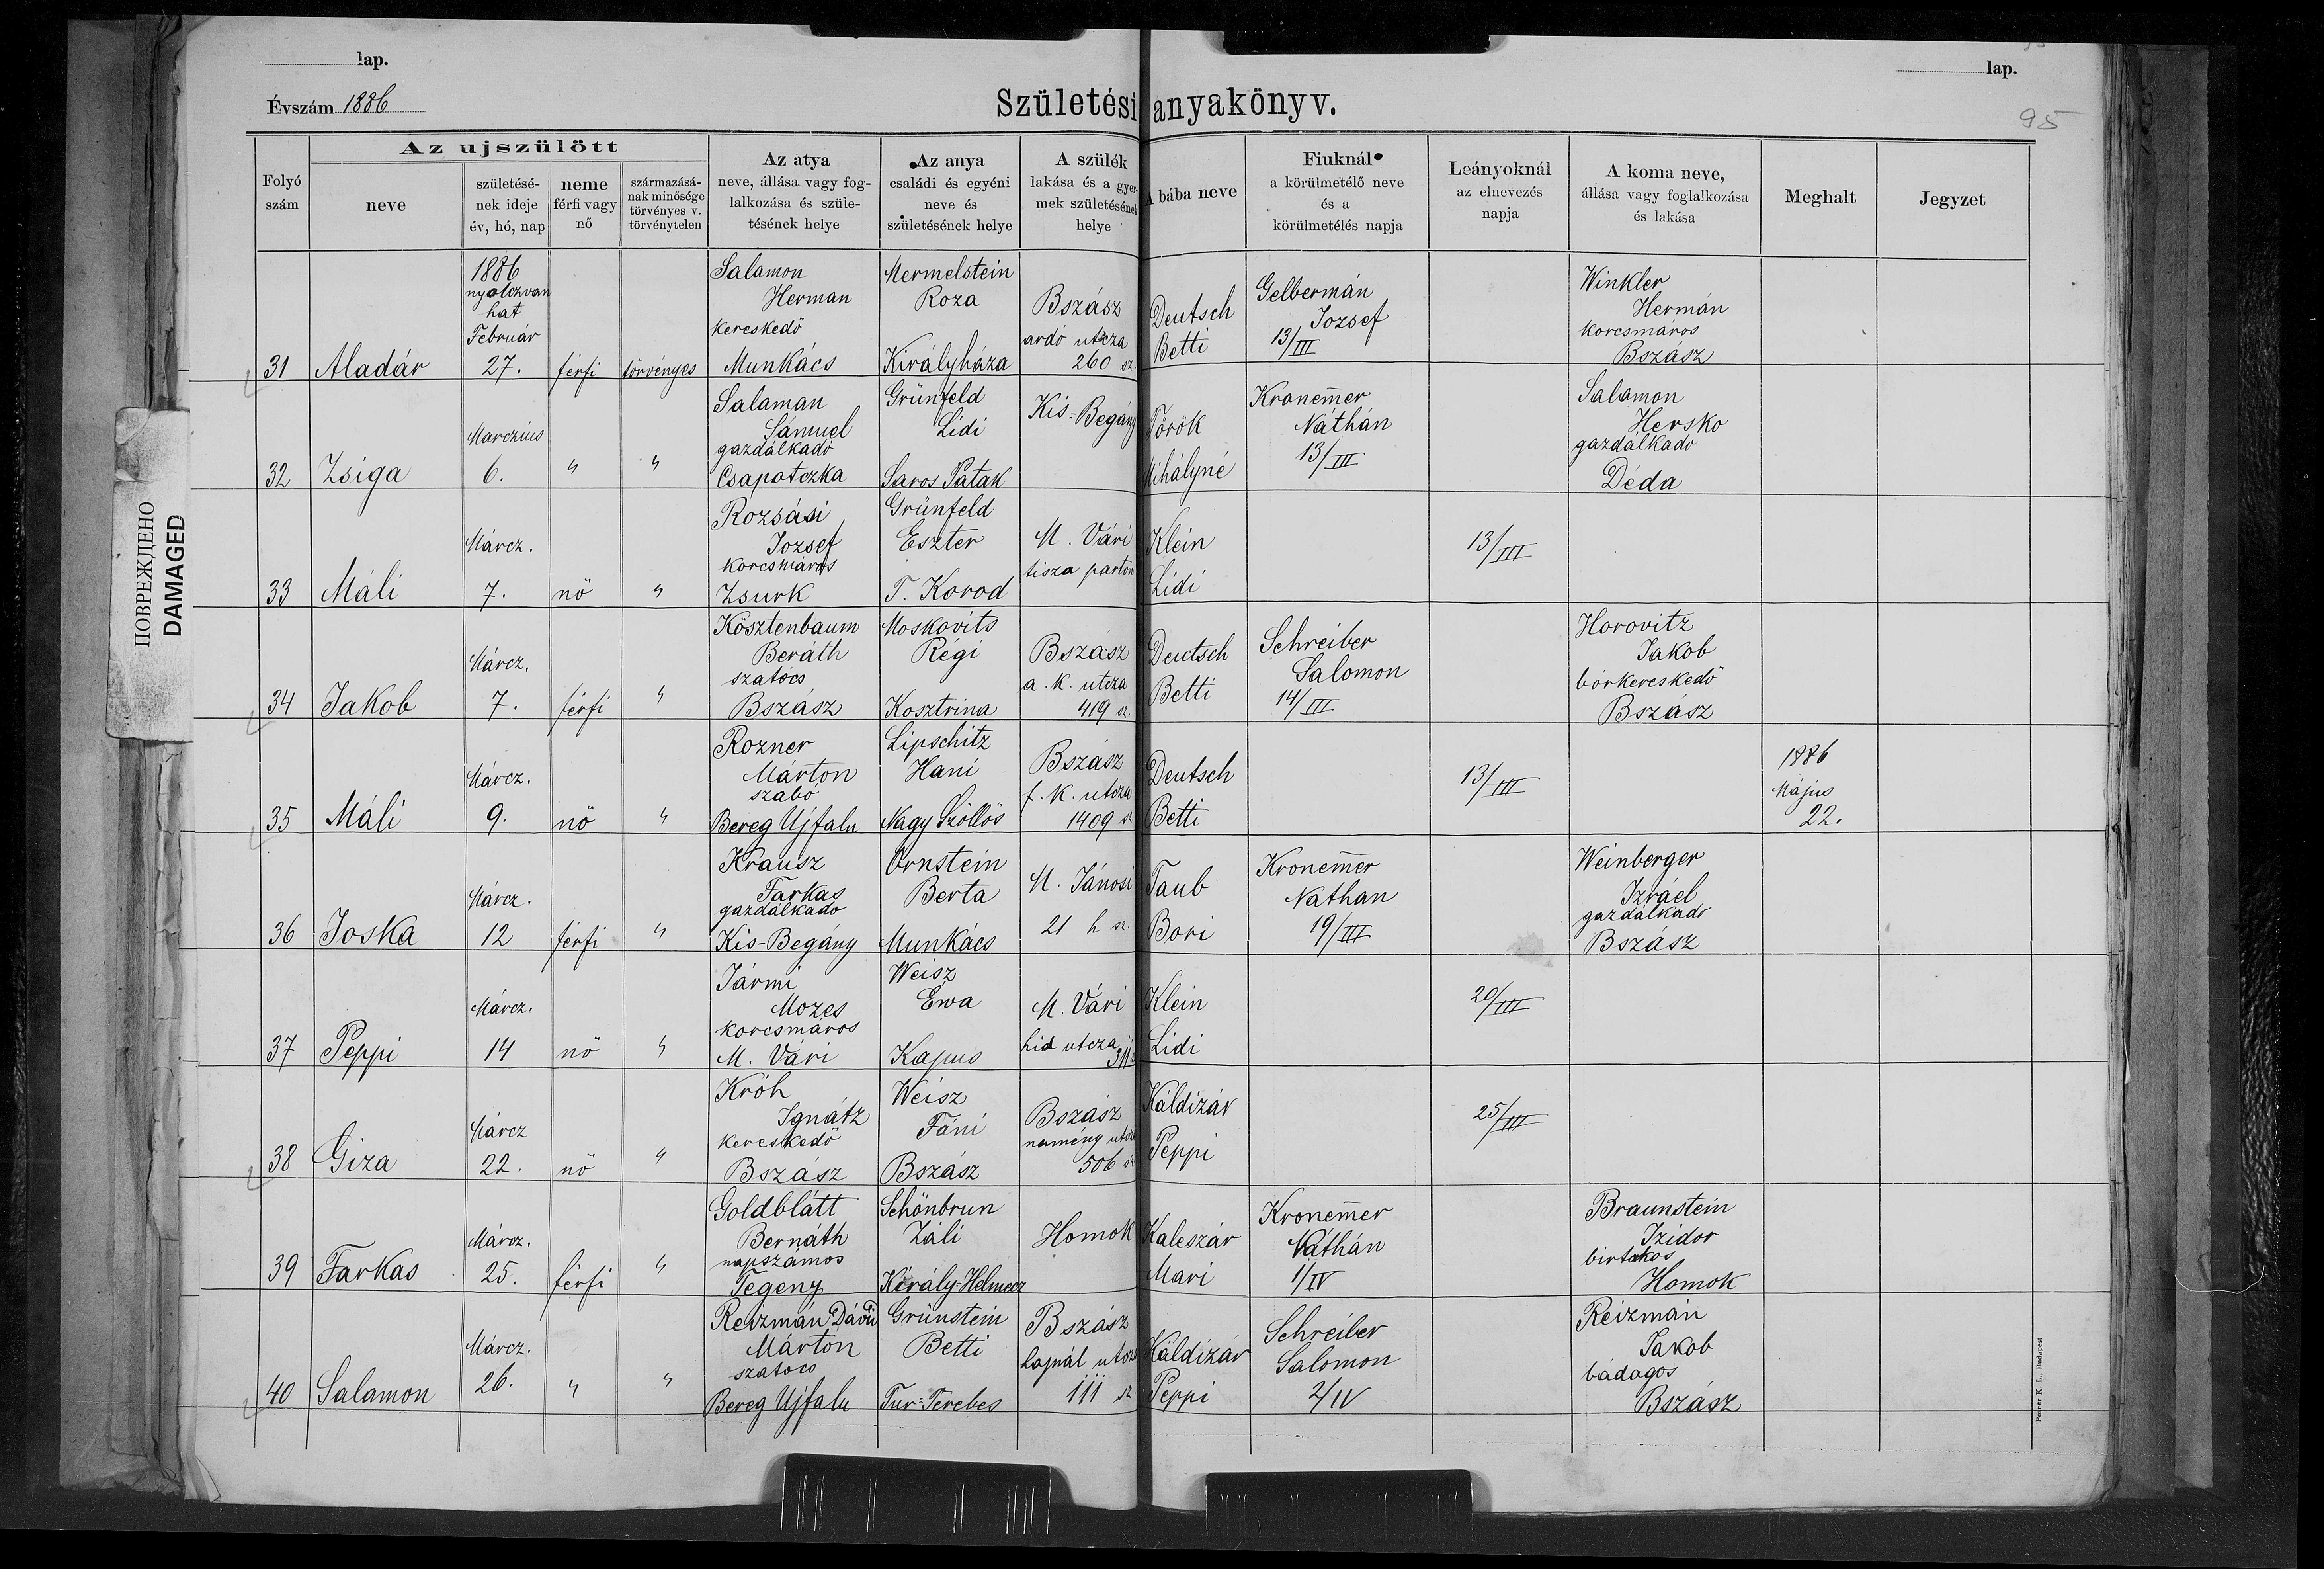 lap.
lap.
Évszám 1886
Születési anyakönyv.
95
Folyó szám
Az ujszülött
neve
születésé-
nek ideje
év, hó, nap
neme
férfi vagy
nő
származásá-
nak minősége
törvényes v.
törvénytelen
Az atya
neve, állása vagy fog-
lalkozása és szüle-
tésének helye
Az anya
családi és egyéni
neve és
születésének helye
A szülék
lakása és a gyer-
mek születésének
helye
A bába neve
Fiuknál
a körülmetélő neve
és a
körülmetélés napja
Leányoknál
az elnevezés
napja
A koma neve,
állása vagy foglalkozása
és lakása
Meghalt
Jegyzet
31 Aladár
1886
nyolczvan
hat
Február
27.
férfi
törvényes
Salamon
Herman
kereskedő
Munkács
Mermelstein
Roza
Királyháza
Bszász
ardó utcza
260 sz.
Deutsch
Betti
Gelbermán
Jozsef
13/III
Winkler
Hermán
korcsmáros
Bszász
32 Zsiga
Marczius
6.
"
"
Salaman
Sámuel
gazdálkadó
Csapatczka
Grünfeld
Lidi
Saros Patak
Kis-Begány
Török
Mihályné
Kronem̅er
Náthán
13/III
Salamon
Hersko
gazdálkadó
Déda
33 Máli
Márcz.
7.
nő
"
Rozsási
Jozsef
korcsmáros
Zsurk
Grünfeld
Eszter
T. Korod
M. Vári
tisza parton
Klein
Lidi
13/III
34 Jakob
Márcz.
7.
férfi
"
Kösztenbaum
Beráth
szatocs
Bszász
Moskovits
Régi
Kosztrina
Bszász
a. K. utcza
419 sz.
Deutsch
Betti
Schreiber
Salomon
14/III
Horovitz
Jakob
bőrkereskedő
Bszász
35 Máli
Márcz.
9.
nő
"
Rozner
Márton
szabó
Bereg Ujfalu
Lipschitz
Hani
Nagy Szöllös
Bszász
f. K. utcza
1409 sz
Deutsch
Betti
13/III
1886
Május
22.
36 Joska
Márcz.
12
férfi
"
Krausz
Farkas
gazdálkado
Kis-Begány
Ornstein
Berta
Munkács
M. Jánosi
21 h sz.
Taub
Bori
Kronem̅er
Nathan
19/III
Weinberger
Izráel
gazdálkado
Bszász
37 Peppi
Márcz.
14
nő
"
Jármi
Mozes
korcsmáros
M. Vári
Weisz
Éwa
Kapus
M. Vári
hid utcza
311
Klein
Lidi
20/III
38 Giza
Márcz
22.
nő
"
Króh
Ignátz
kereskedő
Bszász
Weisz
Fáni
Bszász
Bszász
namény utcza
506 sz
Káldizár
Peppi
25/III
39 Farkas
Márcz.
25.
férfi
"
Goldblátt
Bernáth
napszámos
Tegeny
Schönbrun
Záli
Király-Helmecz
Homok
Kaleszár
Mari
Kronem̅er
Náthán
1/IV
Braunstein
Izidor
birtokos
Homok
40 Salamon
Márcz.
26.
"
"
Reizmán Dávid
Márton
szatocs
Bereg Ujfalu
Grünstein
Betti
Tur-Terebes
Bszász
utcza
111 sz.
Káldizár
Peppi
Schreiber
Salomon
2/IV
Reizmán
Jakob
bádogos
Bszász
ПОВРЕЖДЕНО
DAMAGED
Budapest